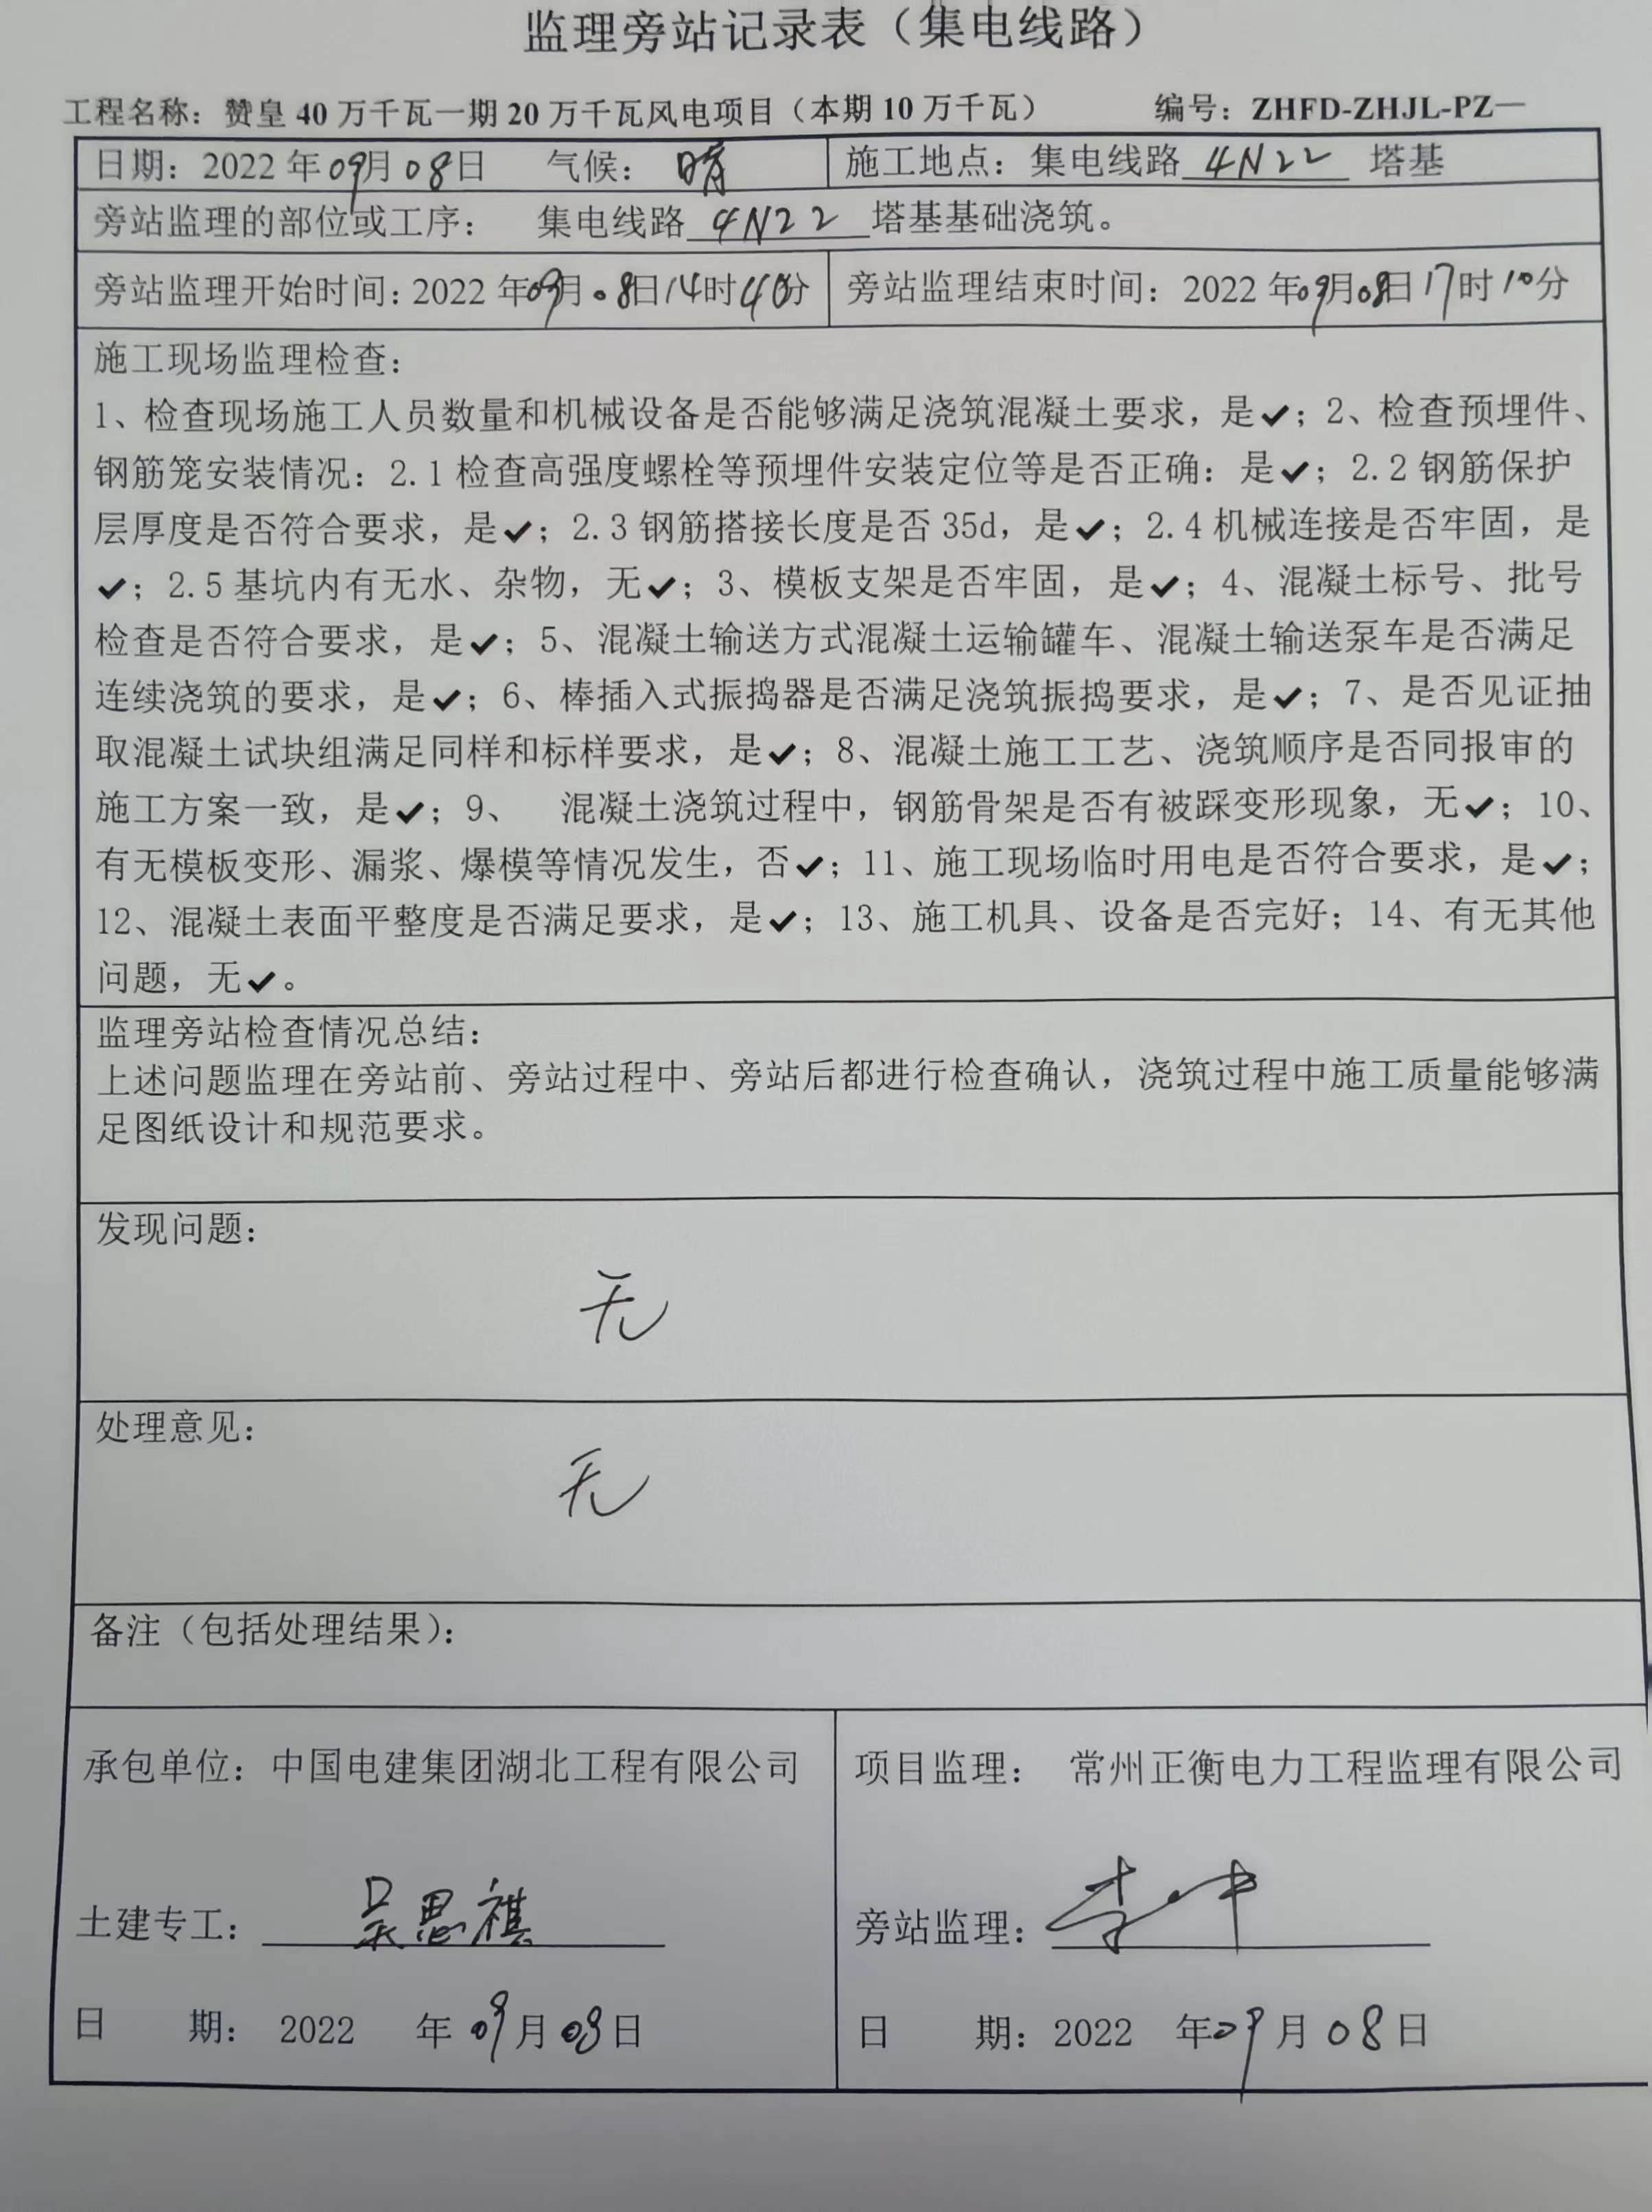 监理旁站记录表（集电线路）
工程名称：赞皇 40 万千瓦一期 20 万千瓦风电项目（本期 10 万千瓦） 编号：ZHFD-ZHJL-PZ—
日期：2022 年 09月 08日 气候： 晴 施工地点：集电线路 4N22 塔基
旁站监理的部位或工序： 集电线路 4N22 塔基基础浇筑。
旁站监理开始时间：2022 年09月08日14时40分 旁站监理结束时间：2022 年09月08日17时10分
施工现场监理检查：
1、检查现场施工人员数量和机械设备是否能够满足浇筑混凝土要求，是✔；2、检查预埋件、
钢筋笼安装情况：2.1 检查高强度螺栓等预埋件安装定位等是否正确：是✔；2.2 钢筋保护
层厚度是否符合要求，是✔；2.3 钢筋搭接长度是否 35d，是✔；2.4 机械连接是否牢固，是
✔；2.5 基坑内有无水、杂物，无✔；3、模板支架是否牢固，是✔；4、混凝土标号、批号
检查是否符合要求，是✔；5、混凝土输送方式混凝土运输罐车、混凝土输送泵车是否满足
连续浇筑的要求，是✔；6、棒插入式振捣器是否满足浇筑振捣要求，是✔；7、是否见证抽
取混凝土试块组满足同样和标样要求，是✔；8、混凝土施工工艺、浇筑顺序是否同报审的
施工方案一致，是✔；9、 混凝土浇筑过程中，钢筋骨架是否有被踩变形现象，无✔；10、
有无模板变形、漏浆、爆模等情况发生，否✔；11、施工现场临时用电是否符合要求，是✔；
12、混凝土表面平整度是否满足要求，是✔；13、施工机具、设备是否完好；14、有无其他
问题，无✔。
监理旁站检查情况总结：
上述问题监理在旁站前、旁站过程中、旁站后都进行检查确认，浇筑过程中施工质量能够满
足图纸设计和规范要求。
发现问题：
无
处理意见：
无
备注（包括处理结果）：
承包单位：中国电建集团湖北工程有限公司 项目监理： 常州正衡电力工程监理有限公司
土建专工： 吴思祺 旁站监理：
日 期： 2022 年 09月 08日 日 期：2022 年09月 08日